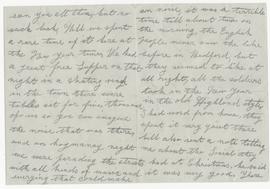 can you all there, but no
such luck. Well we spent
a rare time of it here at
the New Year time. We had
a great free supper on that
night in a skating rink
in the town there were
tables set for five thousand
of us so you can imagine
the noise that was there
and on hogmanay night
we were parading the streets
with all kinds of music and
everything that could make
a noise, it was a terrible
time till about two in
the morning, the English
people never saw the like
before in Bedford, but
they seemed to like it
all right, all the soldiers
took in the New Year
in the old Highland style
I had word from home, they
spent it very quiet there
Bill also sent a note telling
me about the Social they
had at Christmas, he said
it was very good. There